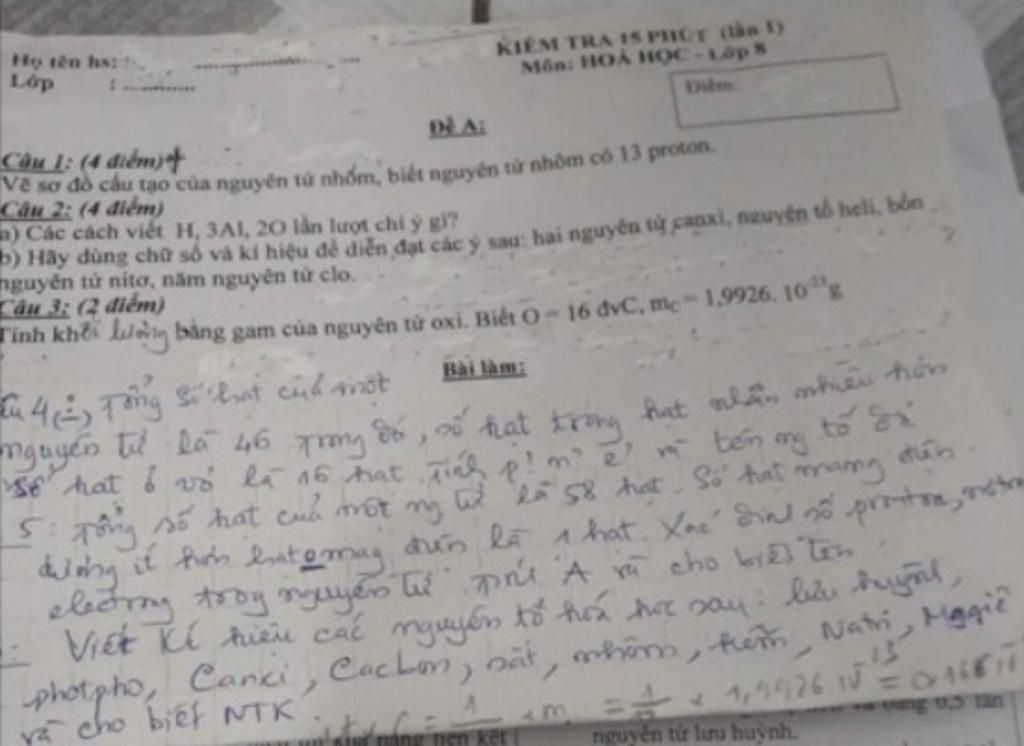 Họ tên hs: ..............................
Lớp : ............
KIỂM TRA 15 PHÚT (lần 1)
Môn: HOÁ HỌC - Lớp 8
Điểm:
Đề A:
Câu 1: (4 điểm)
Vẽ sơ đồ cấu tạo của nguyên tử nhôm, biết nguyên tử nhôm có 13 proton.
Câu 2: (4 điểm)
a) Các cách viết H, 3Al, 2O lần lượt chỉ ý gì?
b) Hãy dùng chữ số và kí hiệu để diễn đạt các ý sau: hai nguyên tử canxi, nguyên tố heli, bốn
nguyên tử nitơ, năm nguyên tử clo.
Câu 3: (2 điểm)
Tính khối lượng bằng gam của nguyên tử oxi. Biết O = 16 đvC, mC = 1,9926. 10⁻²³g
Bài làm:
4 Tổng số hạt của một
nguyên tử là 46 trong đó, số hạt trong hạt nhân nhiều hơn
số hạt ở vỏ là 16 hạt. Tính p, n, e và tên ng tố đó
5: Tổng số hạt của một ng tử là 58 hạt. Số hạt mang điện
dương ít hơn hạt o mag điện là 1 hạt. Xác định số proton,
electrong trog nguyên tử A và cho biết tên
: Viết kí hiệu các nguyên tố hoá học sau: lưu huỳnh,
photpho, Canxi, Cacbon, sắt, nhôm, kẽm, Natri, Magiê
và cho biết NTK.
nguyên tử lưu huỳnh.